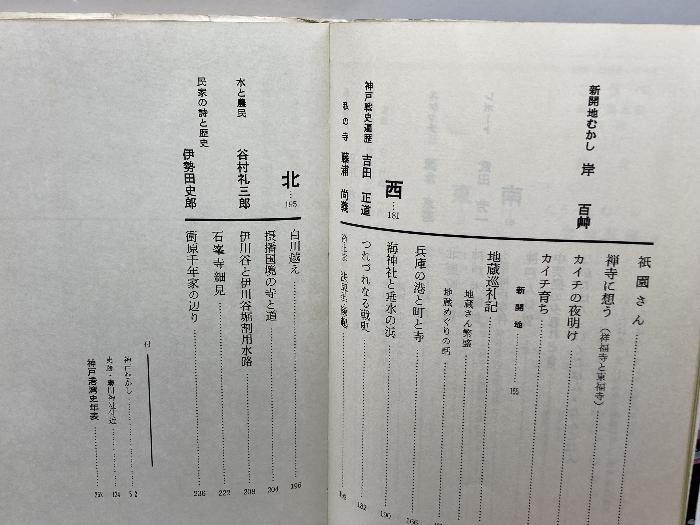 祇園さん
禅寺に想う（祥福寺と東福寺）
カイチの夜明け
カイチ育ち
新開地……155
新開地むかし 岸 百艸
地蔵巡礼記
地蔵さん繁盛
地蔵めぐりの話
兵庫の港と町と寺……166
海神社と垂水の浜……190
つれづれなる戦史……182
西…181
神戸戦史遍歴 吉田 正道
私の寺 藤浦 尚義
白川越え……196
摂播国境の寺と道……204
伊川谷と伊川谷堀割用水路……208
石峯寺細見……222
衝原千年家の辺り……236
北…195
水と農民 谷村礼三郎
民家の詩と歴史 伊勢田史郎
付
神戸むかし……52
史跡・湊川神社付近……124
神戸港湾史年表……252